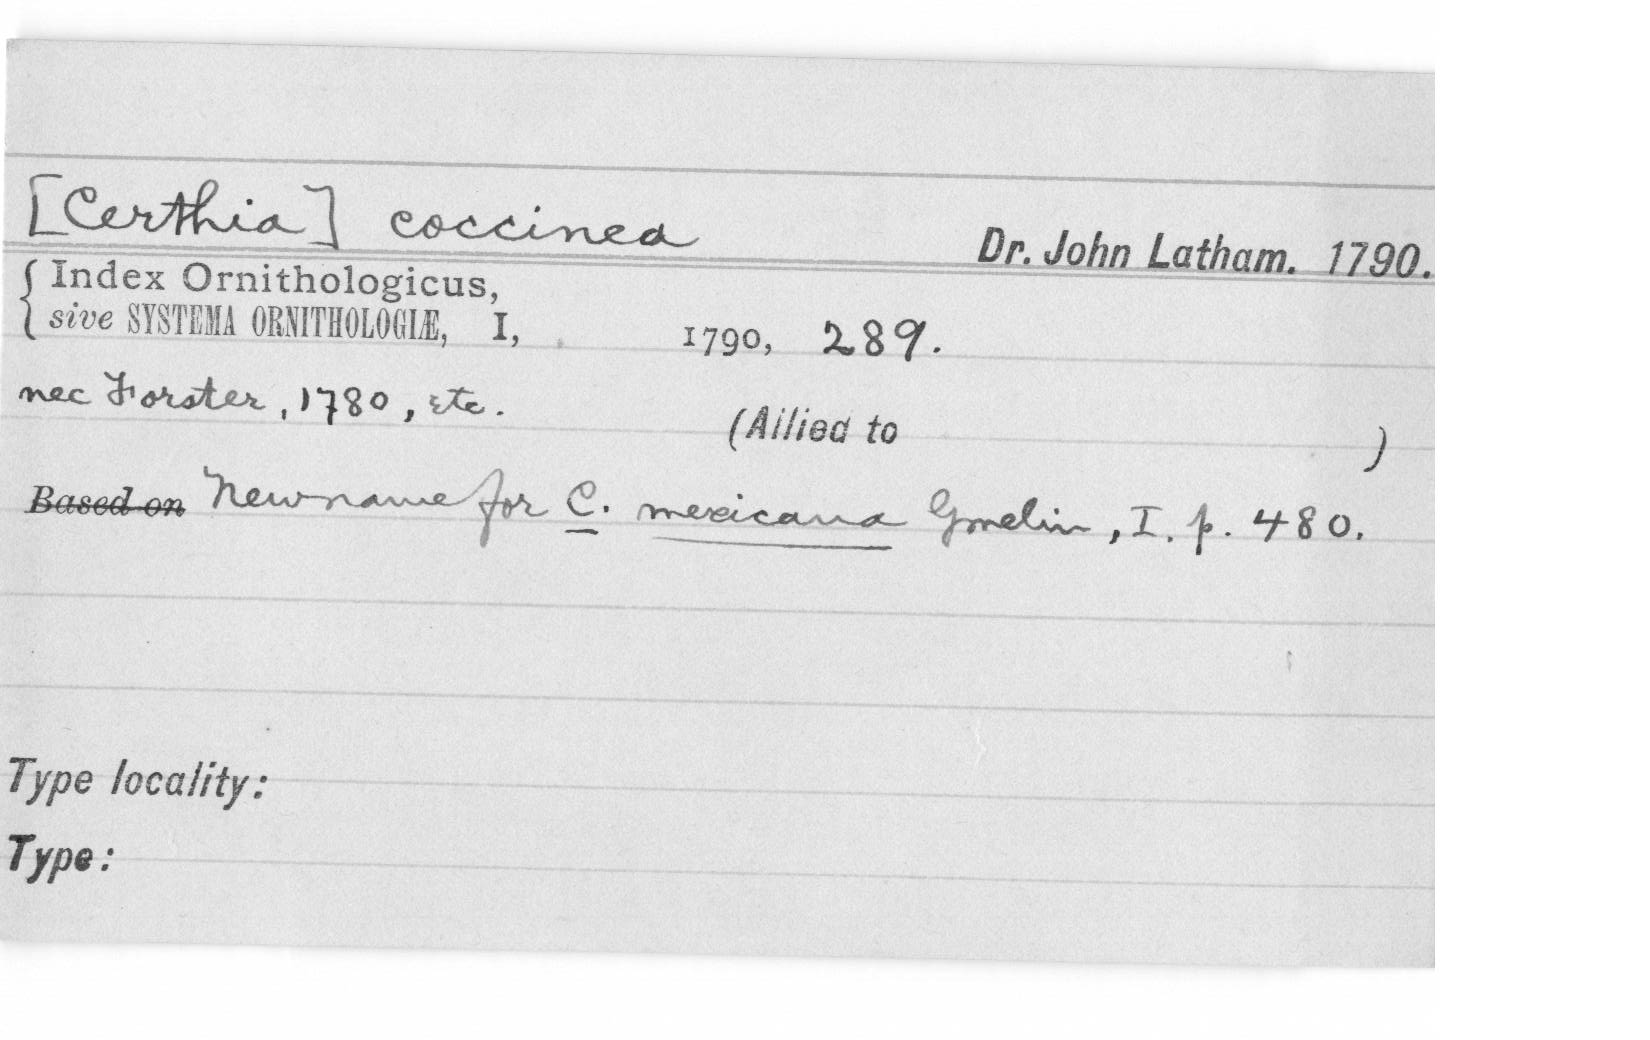 [Certhia] coccinea Dr. John Latham. 1790.
Index Ornithologicus,
sive SYSTEMA ORNITHOLOGIÆ, I, 1790, 289.
nec Forster, 1780, etc. (Allied to )
Based on New name for C. mexicana Gmelin, I. p. 480.
Type locality:
Type: